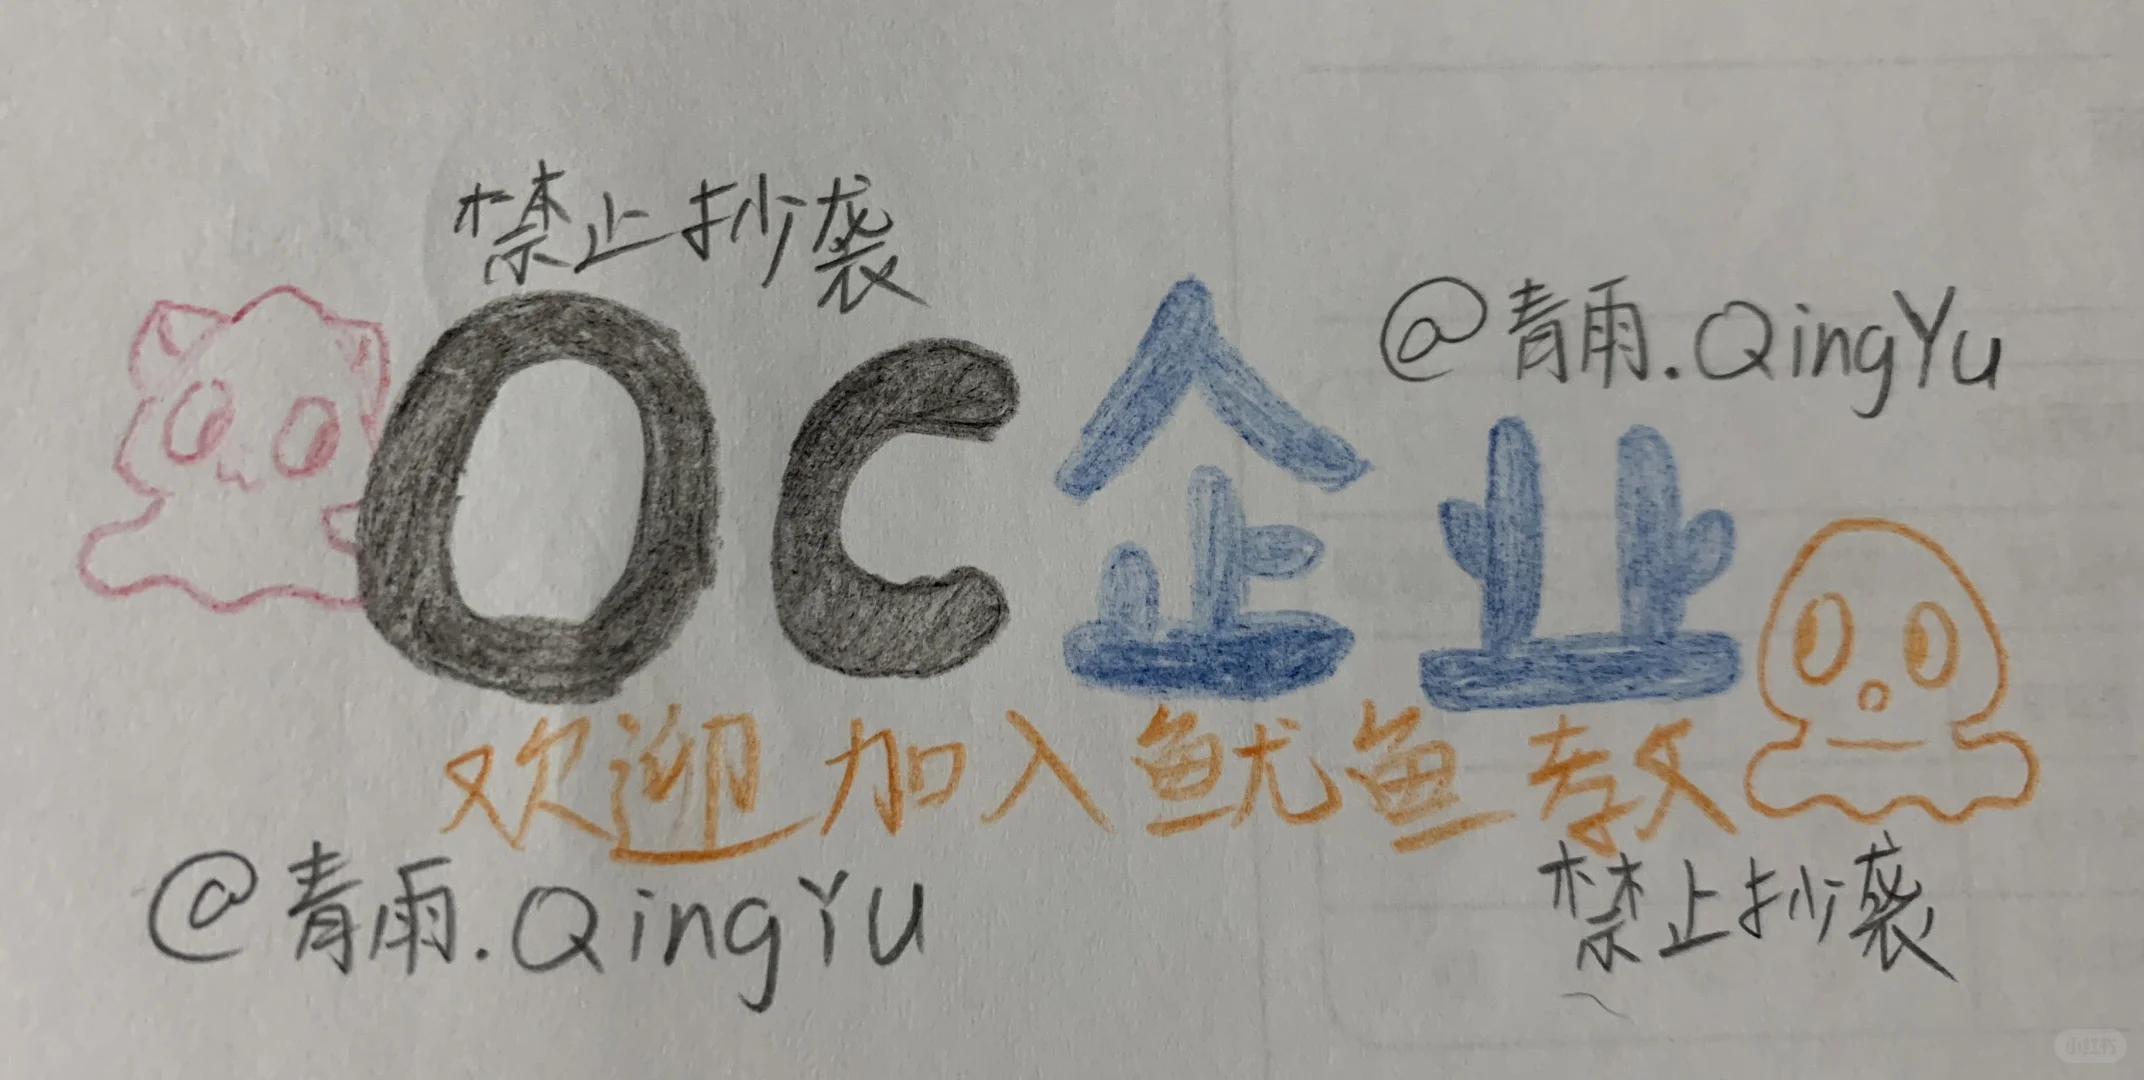 禁止抄袭
@青雨.QingYu
OC企业
欢迎加入鱿鱼教
@青雨.QingYu
禁止抄袭
小红书